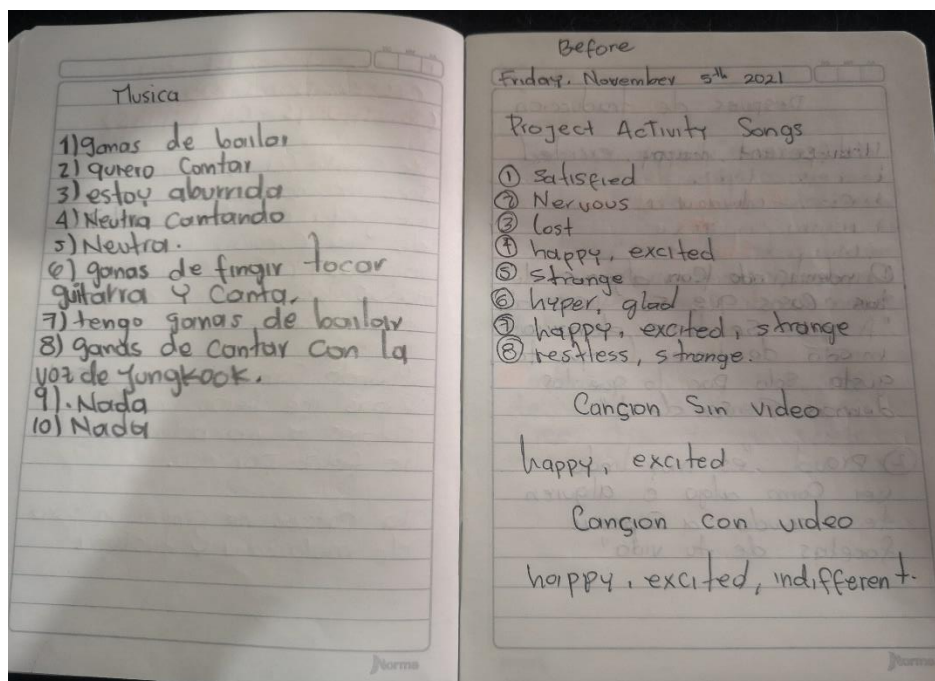 Musica
1) ganas de bailar
2) quiero Cantar
3) estoy aburrida
4) Neutra Cantando
5) Neutra.
6) ganas de fingir tocar
guitarra y Canta.
7) tengo ganas de bailar
8) ganas de Cantar Con la
voz de Jungkook.
9). Nada
10) Nada
Norma
Before
Friday, November 5th 2021
Project Activity Songs
① Satisfied
② Nervous
③ lost
④ happy, excited
⑤ strange
⑥ hyper, glad
⑦ happy, excited, strange
⑧ restless, strange.
Cançion Sin video
happy, excited
Cançion con video
happy, excited, indifferent.
Norma